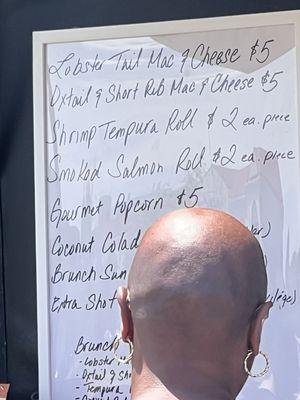 Lobster Tail Mac & Cheese $5
Oxtail & Short Rib Mac & Cheese $5
Shrimp Tempura Roll $2 ea. piece
Smoked Salmon Roll $2 ea. piece
Gourmet Popcorn $5
Coconut Colad
Brunch Sun
Extra Shot
Brunch
- Lobster
- Oxtail & Sh
- Tempura